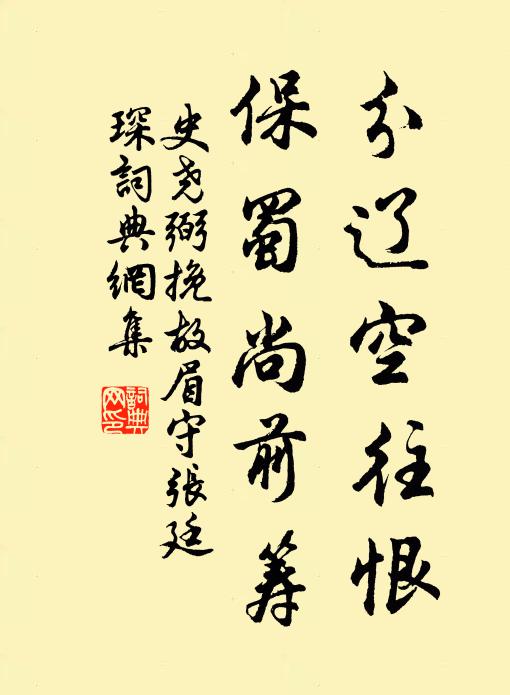 分辽空往恨
保蜀尚前筹
史尧弼挽故眉守張廷
琛詞典網集
詞典网印